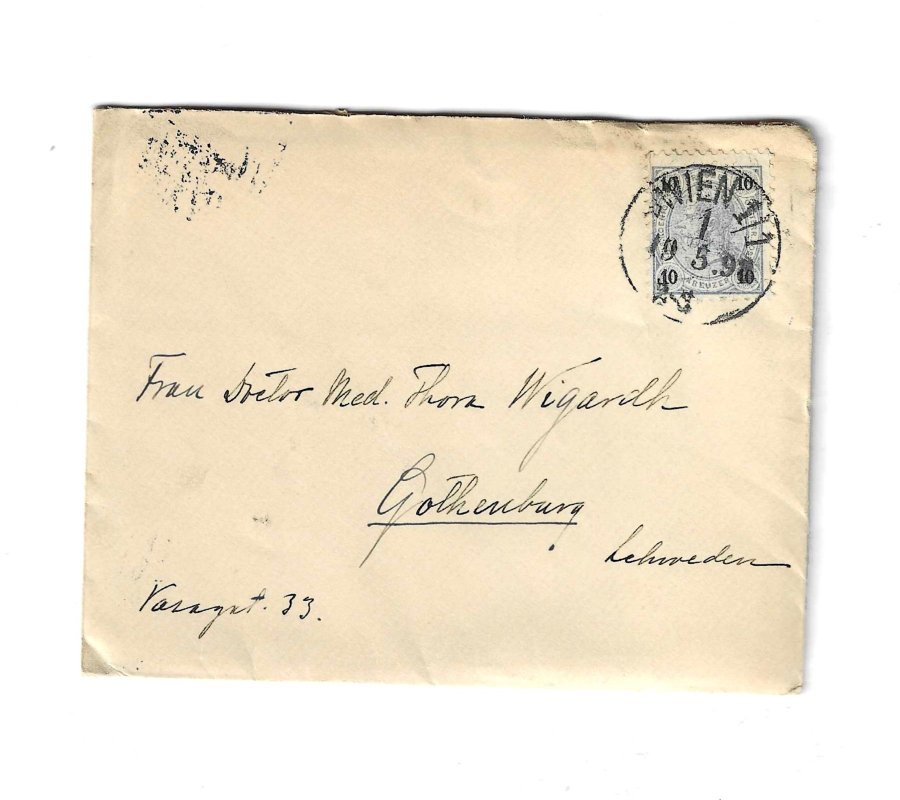 WIEN 1/1
1
19 5.9
10 10
10 KREUZER 10
Frau Doctor Med. Thora Wigardh
Gothenburg
Schweden
Vasagat. 33.